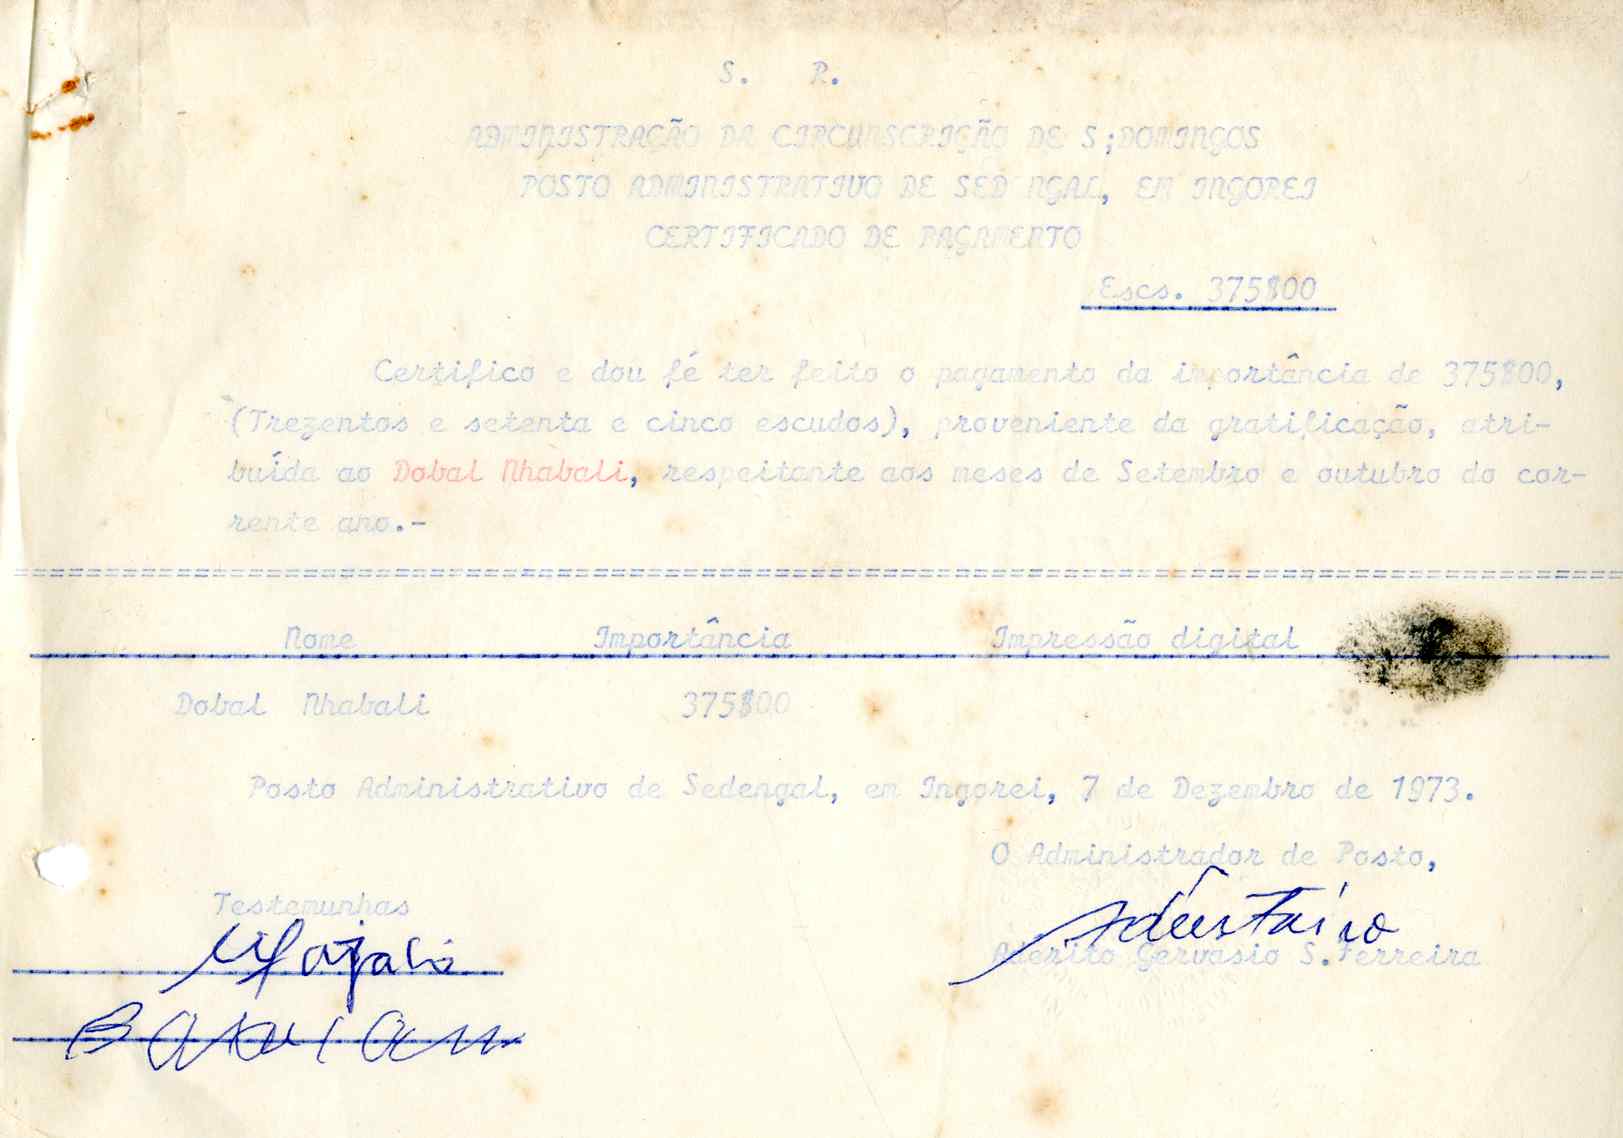 S. R.
ADMINISTRAÇÃO DA CIRCUNSCRIÇÃO DE S;DOMINGOS
POSTO ADMINISTRATIVO DE SED NGAL, EM INGOREI
CERTIFICADO DE PAGAMENTO
Escs. 375$00
Certifico e dou fé ter feito o pagamento da importância de 375$00,
(Trezentos e setenta e cinco escudos), proveniente da gratificação, atri-
buída ao Dobal Nhabali, respeitante aos meses de Setembro e outubro do cor-
rente ano.-
Nome Importância Impressão digital
Dobal Nhabali 375$00
Posto Administrativo de Sedengal, em Ingorei, 7 de Dezembro de 1973.
O Administrador de Posto,
Testemunhas
Aderito Gervasio S.Ferreira